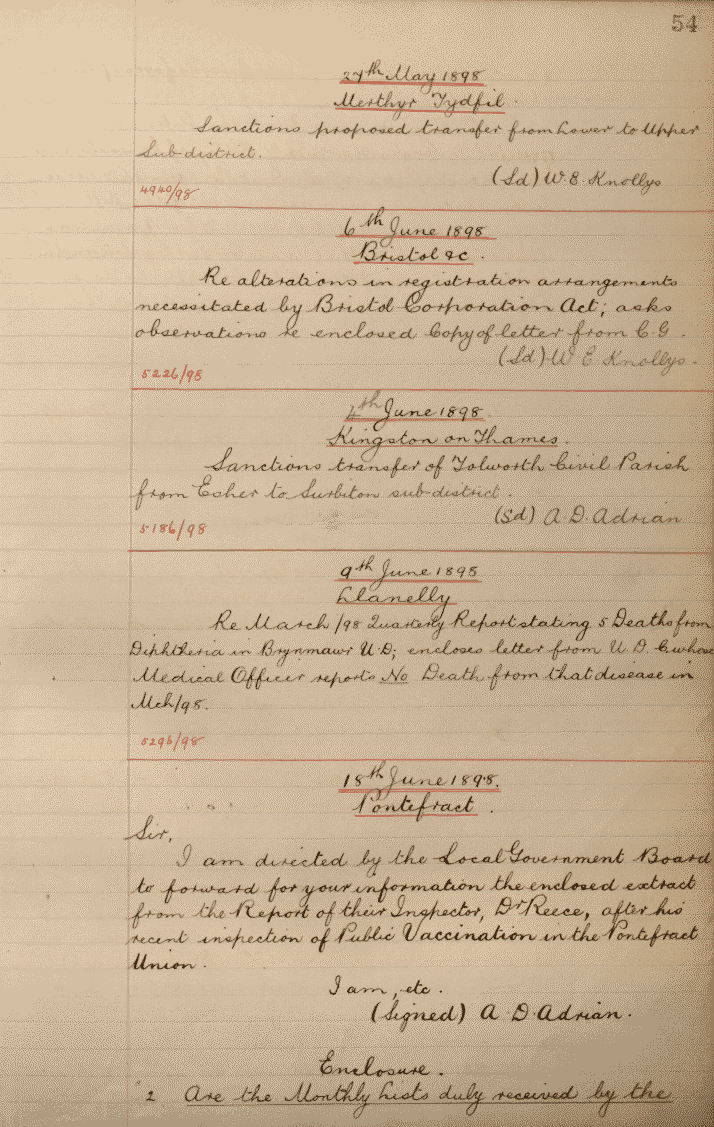 54
27th May 1898
Merthyr Tydfil.
Sanctions proposed transfer from Lower to Upper
Sub-district.
(Sd) W. E. Knollys
4940/98
6th June 1898
Bristol &c.
Re alterations in registration arrangements
necessitated by Bristol Corporation Act; asks
observations re enclosed Copy of letter from C.G.
(Sd) W E Knollys.
5226/98
4th June 1898.
Kingston on Thames.
Sanctions transfer of Tolworth Civil Parish
from Esher to Surbiton sub-district.
(Sd) A D. Adrian
5186/98
9th June 1898
Llanelly
Re March/98 Quarterly Report stating 5 Deaths from
Diphtheria in Brynmawr U.D; encloses letter from U.D.C whose
Medical Officer reports No Death from that disease in
Mch/98.
5295/98
18th June 1898.
Pontefract.
Sir,
I am directed by the Local Government Board
to forward for your information the enclosed extract
from the Report of their Inspector, Dr Reece, after his
recent inspection of Public Vaccination in the Pontefract
Union.
I am, etc.
(Signed) A. D. Adrian.
Enclosure.
2 Are the Monthly Lists duly received by the